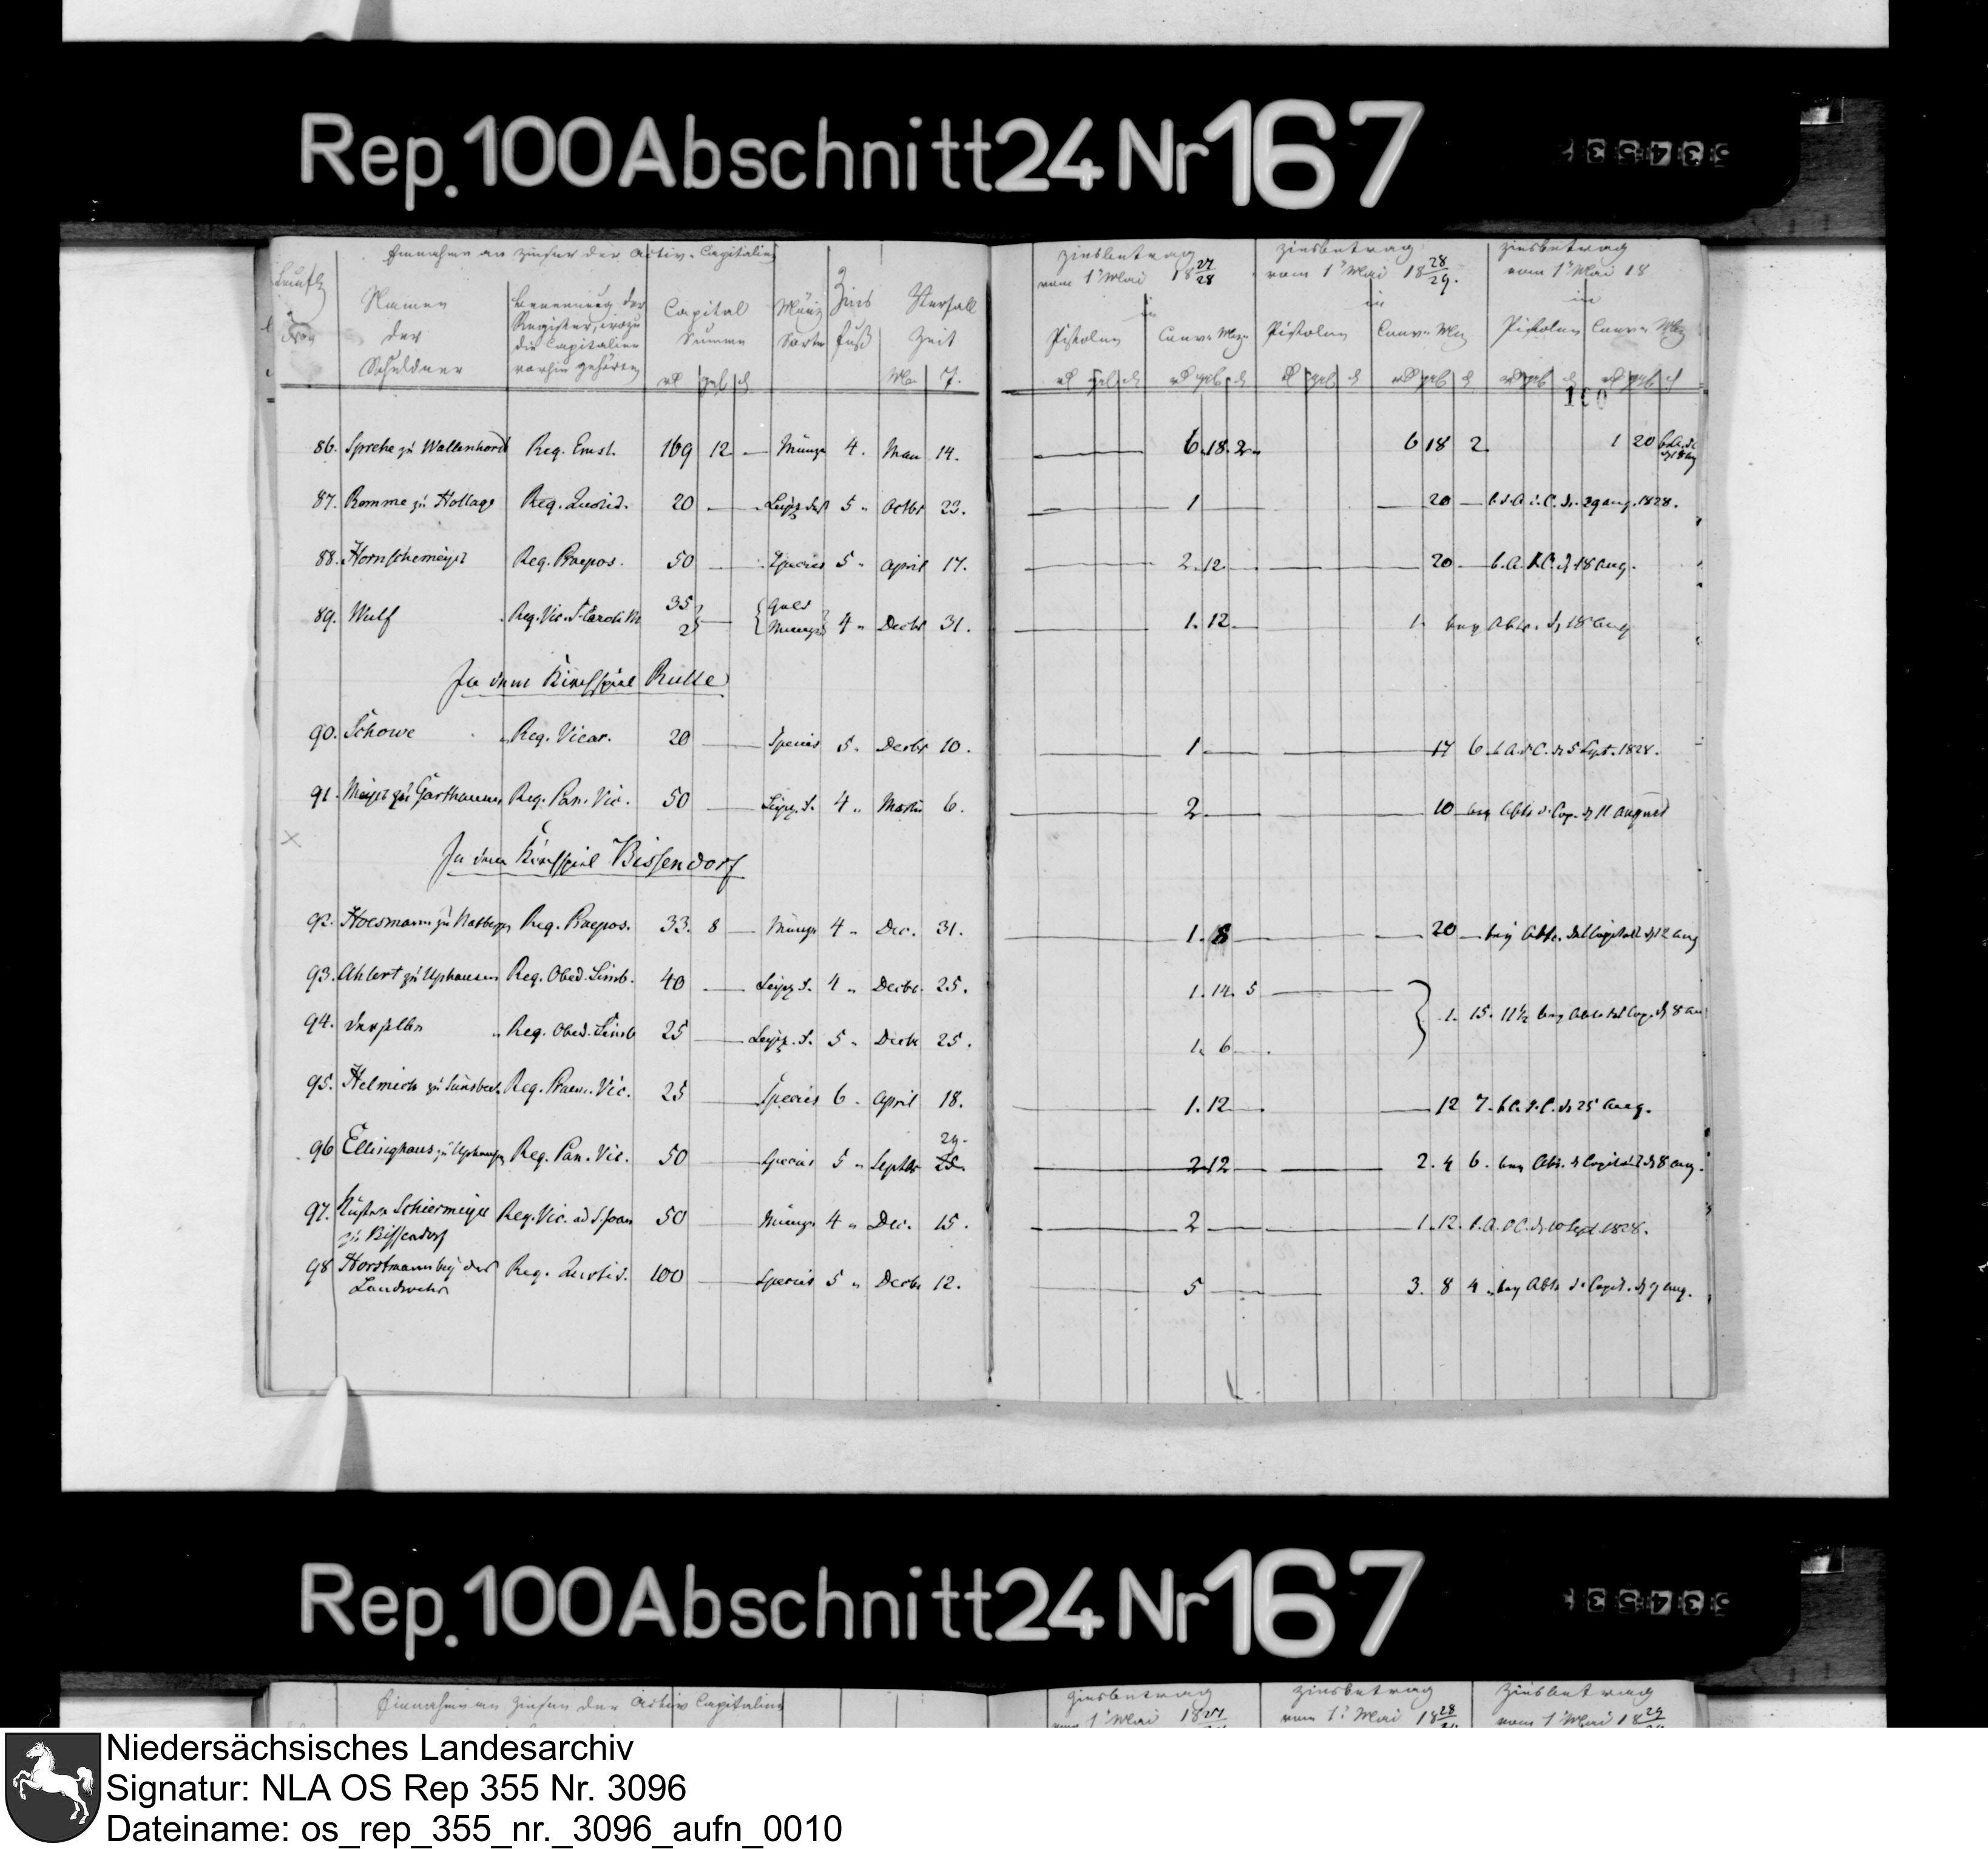 Rep. 100 Abschnitt 24 Nr 167
Einnahme an Zinsen der Activ-Capitalien
Namen der Schuldner
Benennung der Register, wozu die Capitalien vorhin gehörten
Capital Summe
Münz Sorte
Zins fuß
Verfall Zeit
Zinsbetrag vom 1n Mai 18 27/28 in
Pistolen
Conv. Mze
Zinsbetrag vom 1n Mai 18 28/29. in
Pistolen
Conv. Mze
Zinsbetrag vom 1n Mai 18 in
Pistolen
Conv. Mze
100
86. Sprehe zu Wallenhorst Reg. Emst. 169 12 — Münze 4. May 14. 6. 18. 2. 6 18 2. 1 20
87. Romme zu Hollage Reg. 20 — 5 " Octbr 23. 1 — 20 — 29 Aug. 1828.
88. Hornschemeyer Reg. Praepos. 50 — Species 5 " April 17. 2. 12 — 20 — 18 Aug.
89. Wulf Reg. Vic. S. Caroli M 35 2 Gold Münze 4 " Decbr 31. 1. 12 — 1. bey Abl. 18 Aug
In dem Kirchspiel Rulle
90. Schowe Reg. Vicar. 20 — Species 5 " Decbr 10. 1 — 17 6. 5 Sept. 1828.
91. Meyer zu Garthausen Reg. Pan. Vic. 50 — Leipz. S. 4 " Martii 6. 2 — 10 bey Abl. d. Cap. d. 11 August
In dem Kirchspiel Bissendorf
92. Hoesmann zu Natbergen Reg. Praepos. 33. 8 — Münze 4 " Dec. 31. 1. 8 — 20 — bey Abl. des Capitals d. 12 Aug
93. Ahlert zu Uphausen Reg. Obed. Simb. 40 — Leipz. S. 4 " Decbr. 25. 1. 14. 5
94. Derselbe Reg. Obed. Simb 25 — Leipz. S. 5 " Decbr 25. 1. 6 — 1. 15. 11½ bey Abl. des Cap. d. 8 Au
95. Helmich zu Sünsbeck Reg. Praes. Vic. 25 — Species 6 " April 18. 1. 12 — 12 7. 25 Aug.
96 Ellinghaus zu Uphausen Reg. Pan. Vic. 50 — Species 5 " Septbr 25. 29. 2 12 — 2. 4 6. bey Abl. d. Capitals d. 8 Aug.
97. Küster Schiermeyer zu Bissendorf Reg. Vic. ad S. Joan 50 — Münze 4 " Dec. 15. 2 — 1. 12. 10 Sept. 1828.
98 Horstmann bey der Landwehr Reg. 100 — Species 5 " Decbr 12. 5 — 3. 8 4 " bey Abl. d. Capit. d. 9 Aug.
Rep. 100 Abschnitt 24 Nr 167
Einnahme an Zinsen der Activ Capitalien
Zinsbetrag
Zinsbetrag
Zinsbetrag
vom 1n Mai 18 27
vom 1n Mai 18 28
vom 1n Mai 18 29
Niedersächsisches Landesarchiv
Signatur: NLA OS Rep 355 Nr. 3096
Dateiname: os_rep_355_nr._3096_aufn_0010